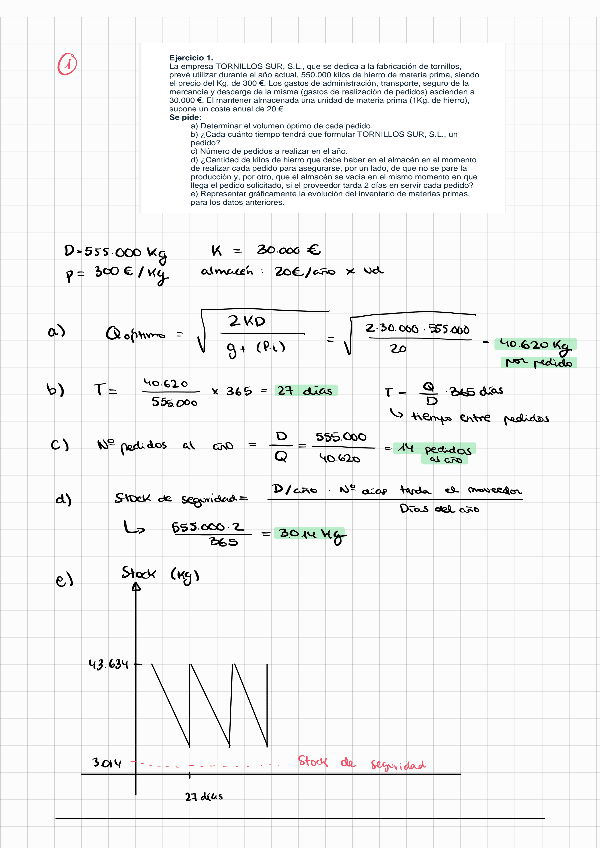 1
Ejercicio 1.
La empresa TORNILLOS SUR, S.L., que se dedica a la fabricación de tornillos,
prevé utilizar durante el año actual, 550.000 kilos de hierro de materia prima, siendo
el precio del Kg. de 300 €. Los gastos de administración, transporte, seguro de la
mercancía y descarga de la misma (gastos de realización de pedidos) ascienden a
30.000 €. El mantener almacenada una unidad de materia prima (1Kg. de hierro),
supone un coste anual de 20 €
Se pide:
a) Determinar el volumen óptimo de cada pedido.
b) ¿Cada cuánto tiempo tendrá que formular TORNILLOS SUR, S.L., un
pedido?
c) Número de pedidos a realizar en el año.
d) ¿Cantidad de kilos de hierro que debe haber en el almacén en el momento
de realizar cada pedido para asegurarse, por un lado, de que no se pare la
producción y, por otro, que el almacén se vacía en el mismo momento en que
llega el pedido solicitado, si el proveedor tarda 2 días en servir cada pedido?
e) Representar gráficamente la evolución del inventario de materias primas,
para los datos anteriores.
D=555.000 Kg K = 30.000 €
p = 300 € / Kg almacén : 20€/año x ud
a) Q óptimo = √ 2KD / g + (P.i) = √ 2·30.000·555.000 / 20 = 40.620 Kg
por pedido
b) T = 40.620 / 555.000 x 365 = 27 días T = Q / D · 365 días
↳ tiempo entre pedidos
c) Nº pedidos al año = D / Q = 555.000 / 40.620 = 14 pedidos
al año
d) Stock de seguridad = D/año · Nº días tarda el proveedor / Días del año
↳ 555.000·2 / 365 = 3014 Kg
e) Stock (Kg)
43.634
3.014 Stock de seguridad
27 días